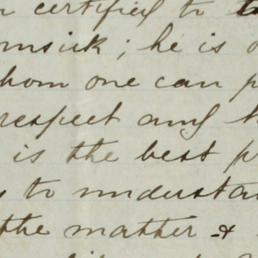 certified to
msick; he is
whom one can
respect and
is the best
to understan
the matter &